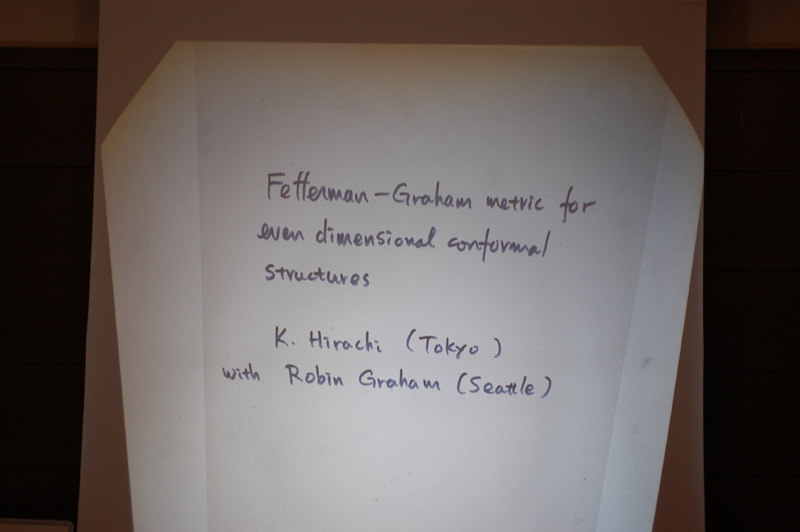 Fefferman-Graham metric for
even dimensional conformal
structures
K. Hirachi (Tokyo)
with Robin Graham (Seattle)